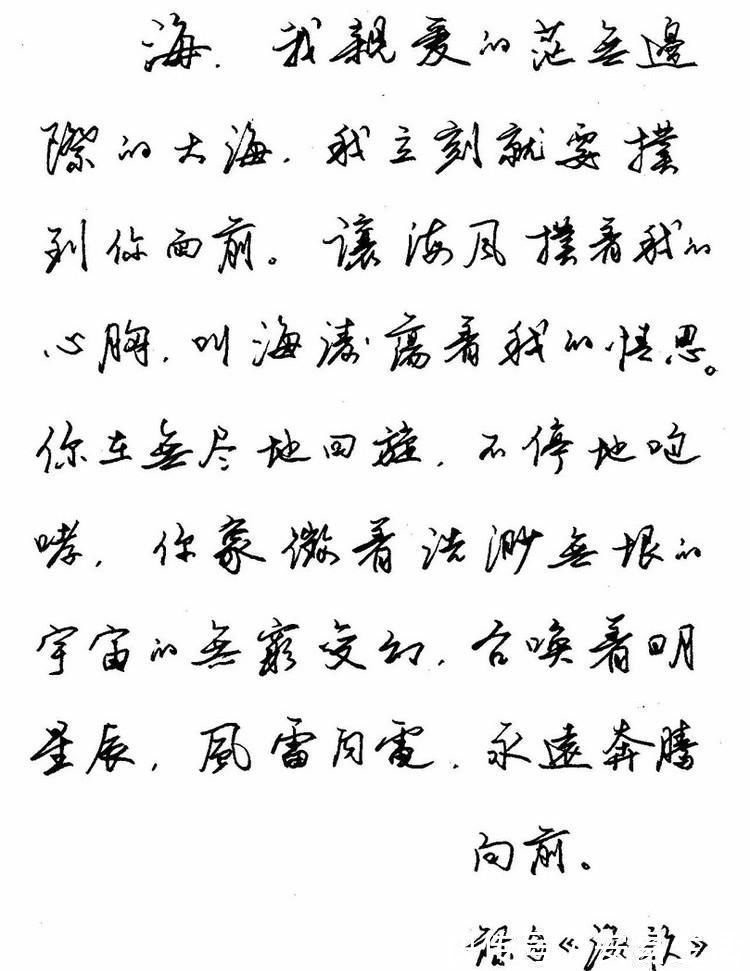 海，我親爱的茫無邊
際的大海，我立刻就要撲
到你面前。讓海风撲着我的
心胸，叫海涛蕩着我的情思。
你在無尽地回旋，不停地咆
哮，你象徵着浩渺無垠的
宇宙的無窮变幻，召唤着明
星辰，風雷闪電，永遠奔騰
向前。